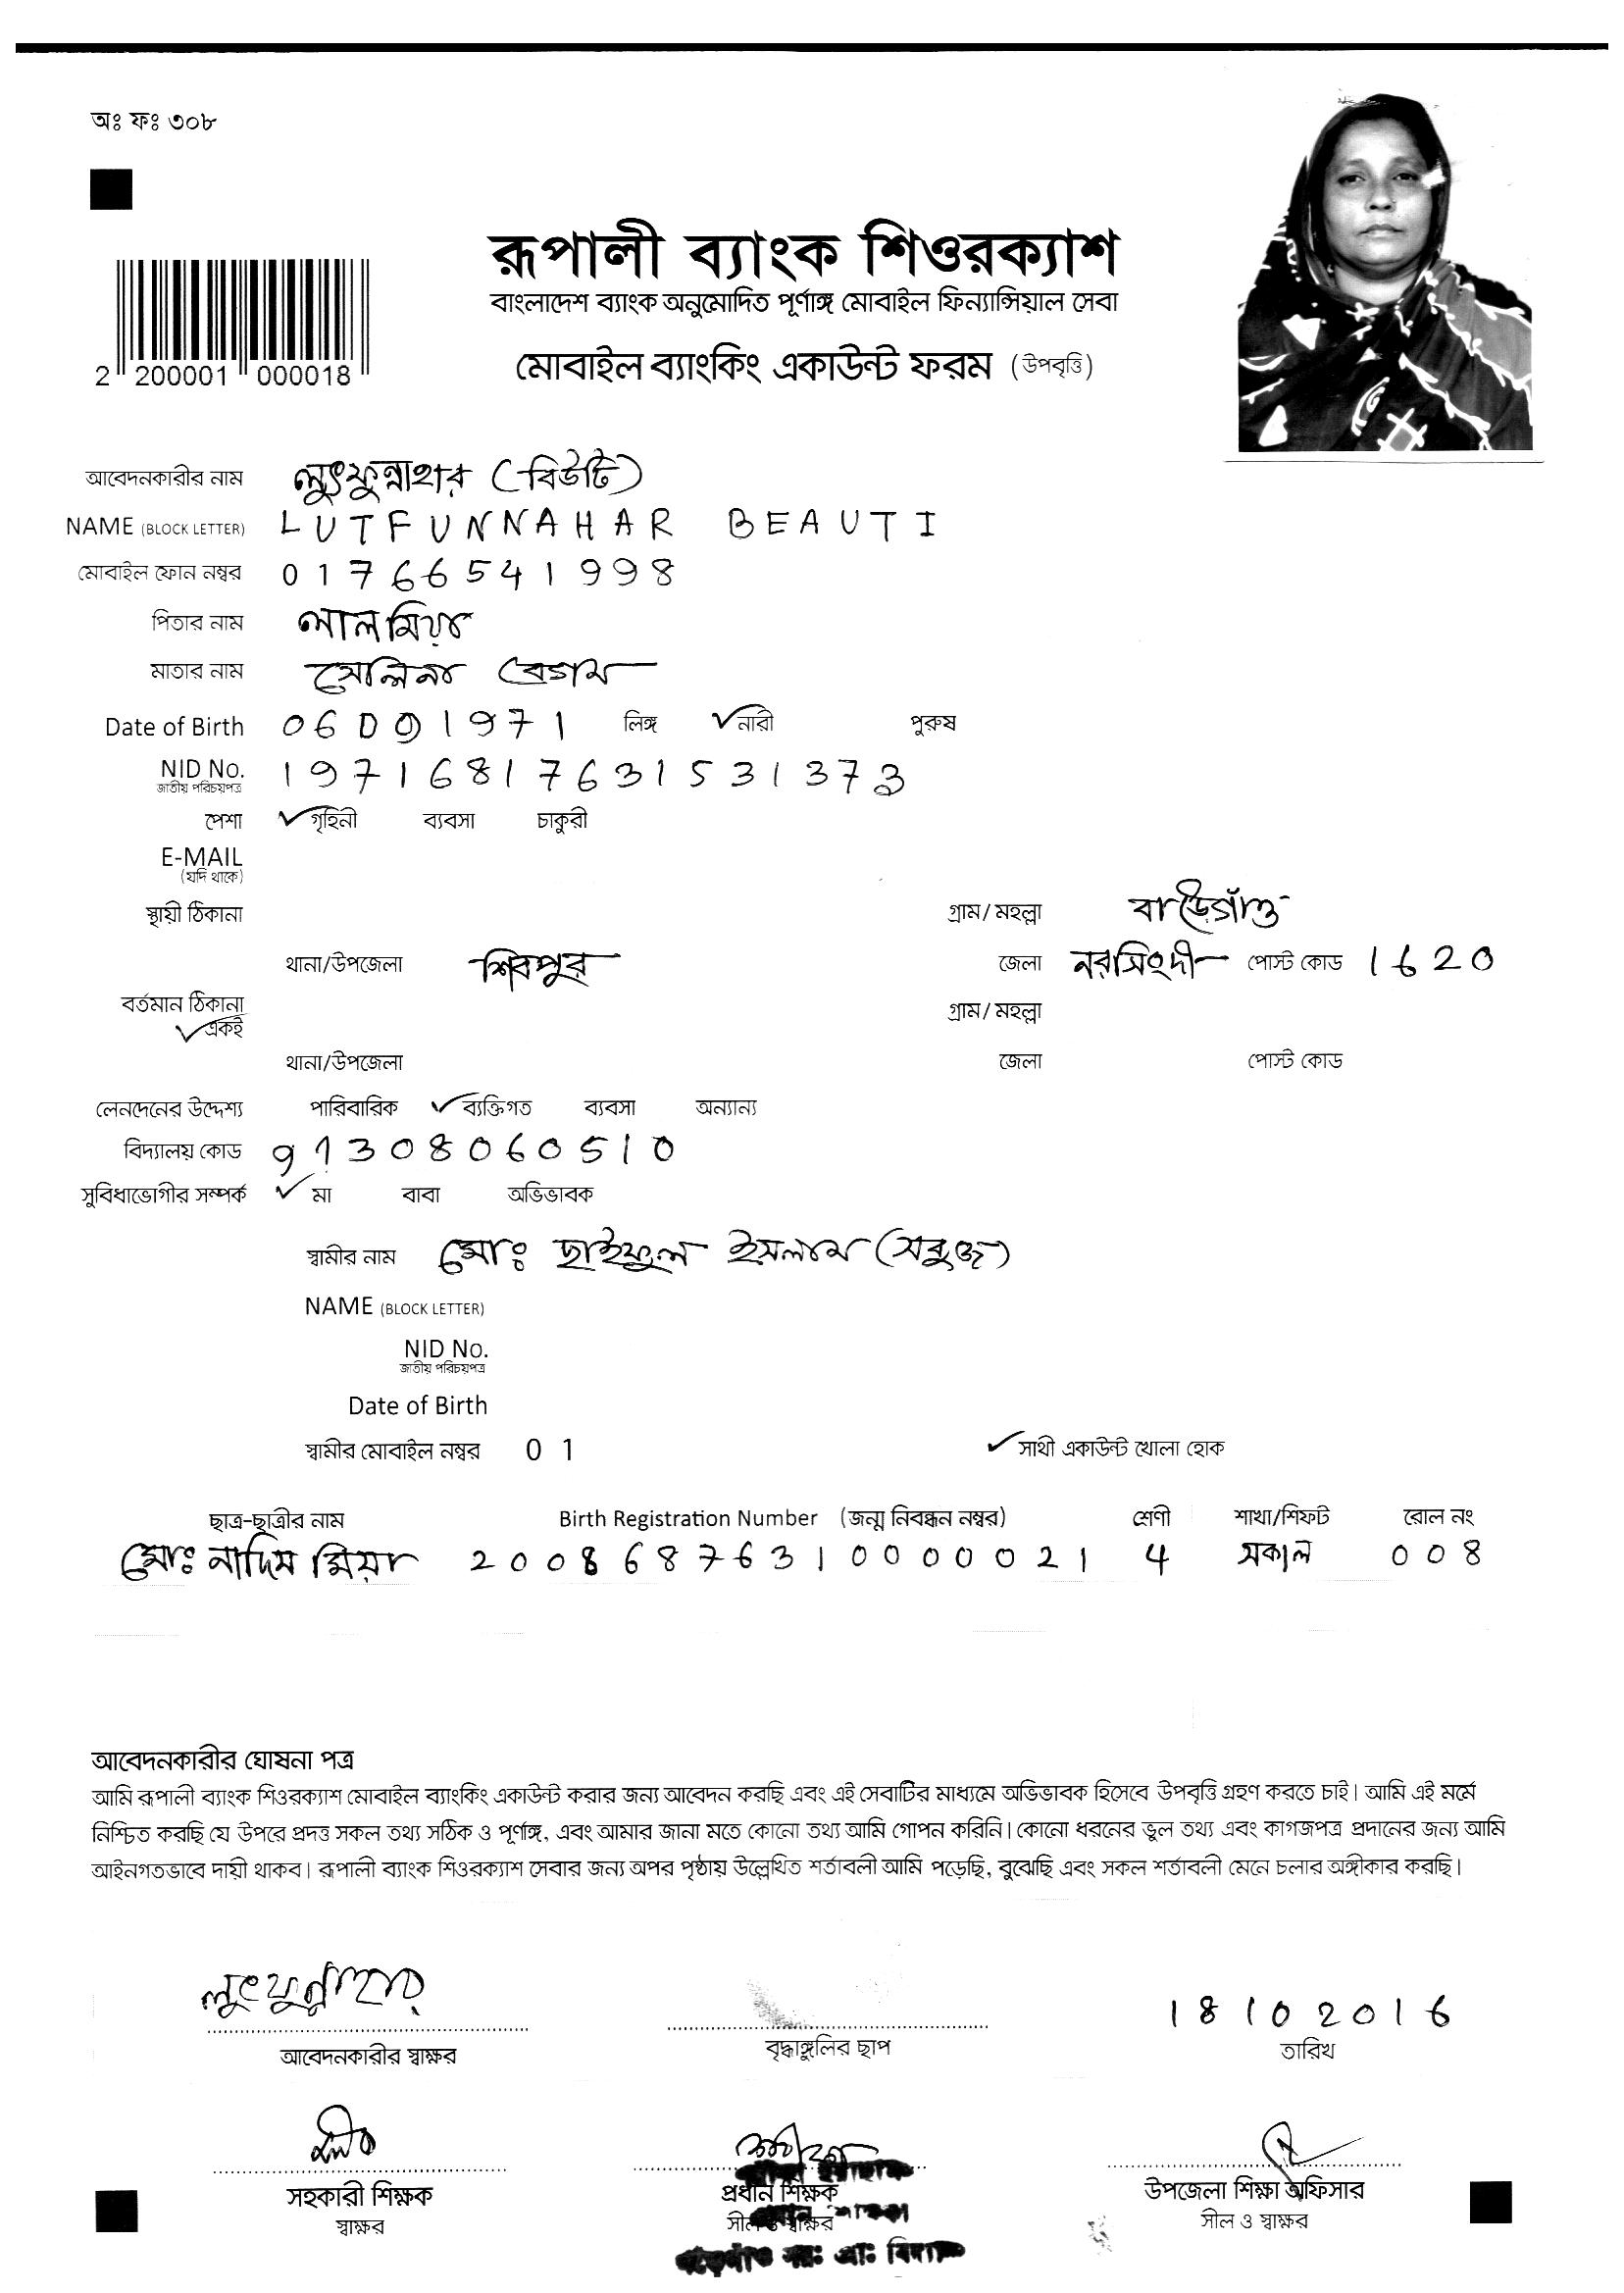 অঃ ফঃ ৩০৮
রূপালী ব্যাংক শিওরক্যাশ
বাংলাদেশ ব্যাংক অনুমোদিত পূর্ণাঙ্গ মোবাইল ফিন্যান্সিয়াল সেবা
2 200001 000018
মোবাইল ব্যাংকিং একাউন্ট ফরম (উপবৃত্তি)
আবেদনকারীর নাম লুৎফুন্নাহার (বিউটি)
NAME (BLOCK LETTER) LUTFUNNAHAR BEAUTI
মোবাইল ফোন নম্বর 01766541998
পিতার নাম লাল মিয়া
মাতার নাম সেলিনা বেগম
Date of Birth 06091971 লিঙ্গ ✓নারী পুরুষ
NID No. 19716817631531373
জাতীয় পরিচয়পত্র
পেশা ✓গৃহিনী ব্যবসা চাকুরী
E-MAIL
(যদি থাকে)
স্থায়ী ঠিকানা গ্রাম/ মহল্লা
থানা/উপজেলা শিবপুর জেলা নরসিংদী পোস্ট কোড 1620
বর্তমান ঠিকানা গ্রাম/ মহল্লা
✓একই
থানা/উপজেলা জেলা পোস্ট কোড
লেনদেনের উদ্দেশ্য পারিবারিক ✓ব্যক্তিগত ব্যবসা অন্যান্য
বিদ্যালয় কোড 91308060510
সুবিধাভোগীর সম্পর্ক ✓মা বাবা অভিভাবক
স্বামীর নাম মোঃ ছাইফুল ইসলাম (সবুজ)
NAME (BLOCK LETTER)
NID No.
জাতীয় পরিচয়পত্র
Date of Birth
স্বামীর মোবাইল নম্বর 0 1 ✓সাথী একাউন্ট খোলা হোক
ছাত্র-ছাত্রীর নাম Birth Registration Number (জন্ম নিবন্ধন নম্বর) শ্রেণী শাখা/শিফট রোল নং
মোঃ নাদিম মিয়া 20086876310000021 4 সকাল 008
আবেদনকারীর ঘোষনা পত্র
আমি রূপালী ব্যাংক শিওরক্যাশ মোবাইল ব্যাংকিং একাউন্ট করার জন্য আবেদন করছি এবং এই সেবাটির মাধ্যমে অভিভাবক হিসেবে উপবৃত্তি গ্রহণ করতে চাই। আমি এই মর্মে
নিশ্চিত করছি যে উপরে প্রদত্ত সকল তথ্য সঠিক ও পূর্ণাঙ্গ, এবং আমার জানা মতে কোনো তথ্য আমি গোপন করিনি। কোনো ধরনের ভুল তথ্য এবং কাগজপত্র প্রদানের জন্য আমি
আইনগতভাবে দায়ী থাকব। রূপালী ব্যাংক শিওরক্যাশ সেবার জন্য অপর পৃষ্ঠায় উল্লেখিত শর্তাবলী আমি পড়েছি, বুঝেছি এবং সকল শর্তাবলী মেনে চলার অঙ্গীকার করছি।
লুৎফুন্নাহার 18102016
আবেদনকারীর স্বাক্ষর বৃদ্ধাঙ্গুলির ছাপ তারিখ
সহকারী শিক্ষক প্রধান শিক্ষক উপজেলা শিক্ষা অফিসার
স্বাক্ষর সীল ও স্বাক্ষর সীল ও স্বাক্ষর